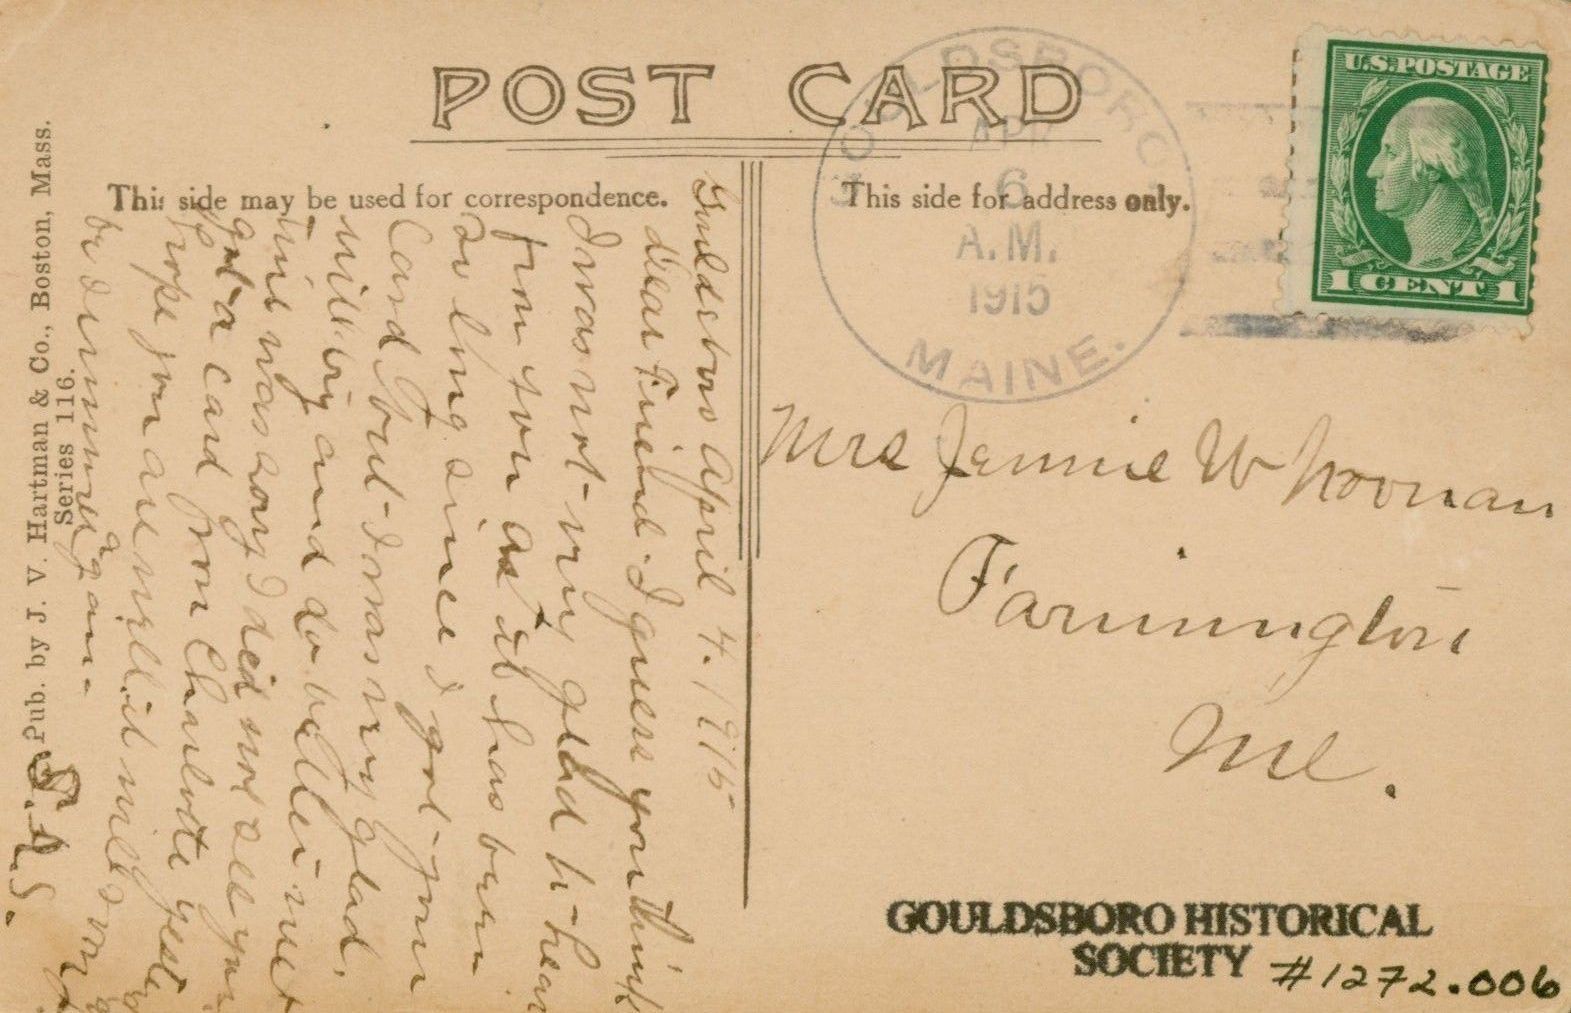 POST CARD
This side may be used for correspondence.
This side for address only.
GOULDSBORO
APR
6
A.M.
1915
MAINE.
U.S.POSTAGE
1 CENT 1
Gouldsboro April 4. 1915
dear Friend - I guess you think
I was not very glad to hear
from you as it has been
so long since I got your
Card but I was very glad,
will try and do better next
time was sorry I did not see you
got a card from Charlotte yester
hope you are well it will soon
be summer again -
S.A.S.
Pub. by J. V. Hartman & Co., Boston, Mass.
Series 116.
Mrs Jennie W Noonan
Farmington
Me.
GOULDSBORO HISTORICAL
SOCIETY #1272.006